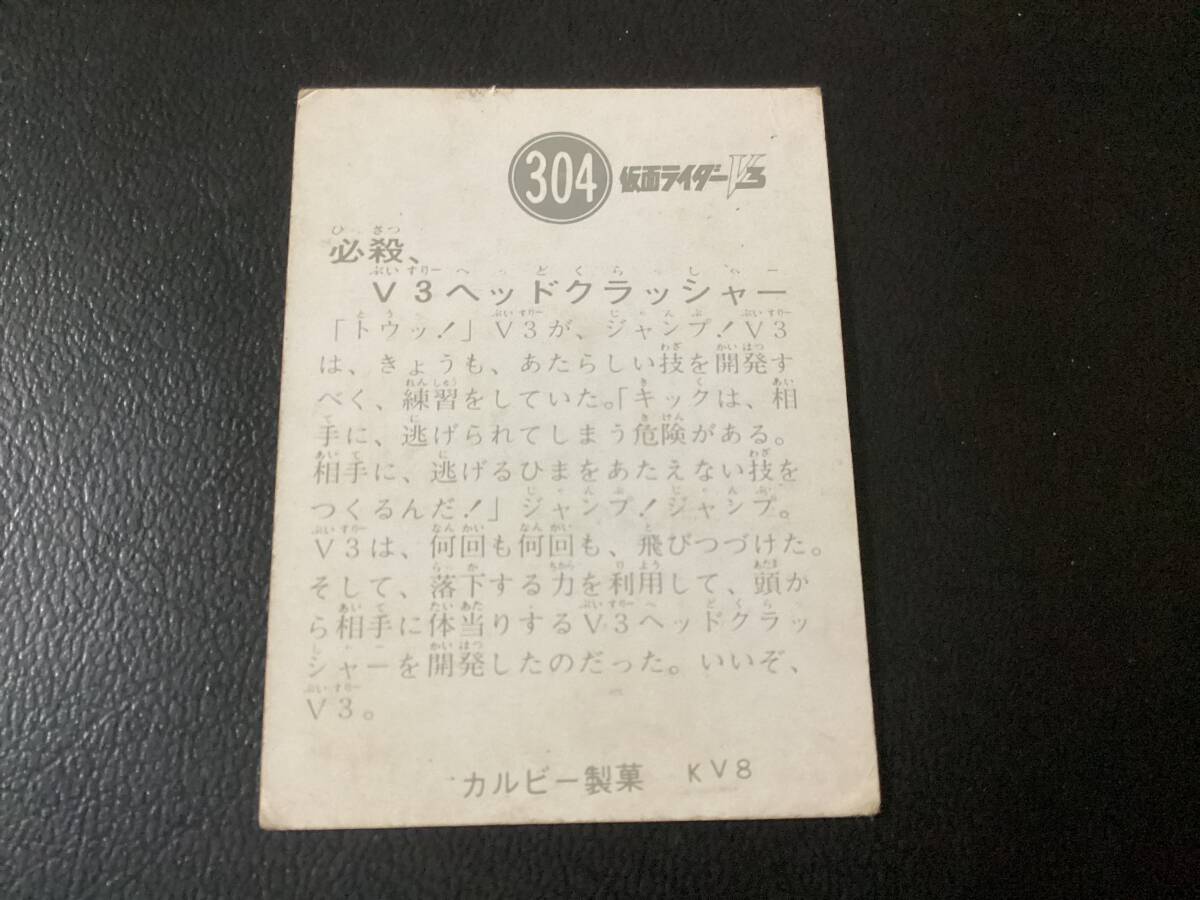 304 仮面ライダーV3
必殺、
V3ヘッドクラッシャー
「トウッ!」V3が、ジャンプ!V3
は、きょうも、あたらしい技を開発す
べく、練習をしていた。「キックは、相
手に、逃げられてしまう危険がある。
相手に、逃げるひまをあたえない技を
つくるんだ!」ジャンプ!ジャンプ。
V3は、何回も何回も、飛びつづけた。
そして、落下する力を利用して、頭か
ら相手に体当りするV3ヘッドクラッ
シャーを開発したのだった。いいぞ、
V3。
カルビー製菓 KV8